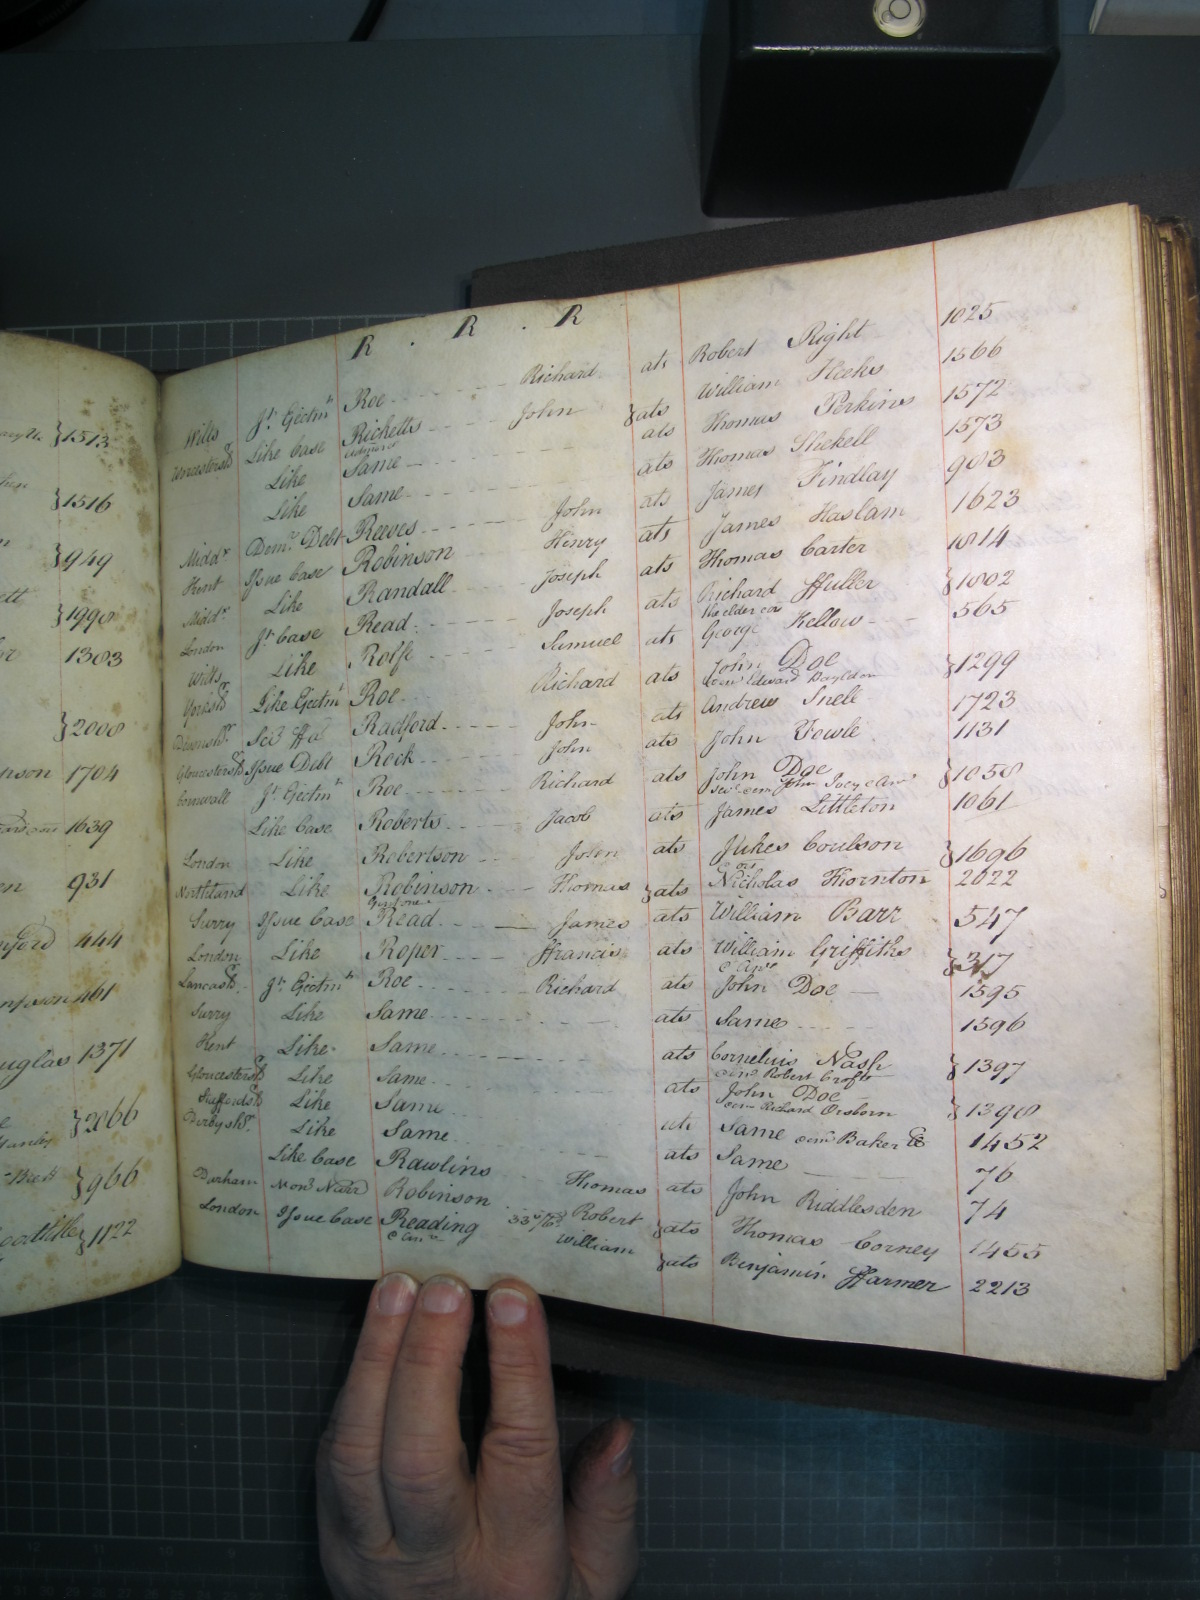 R . R . R
Wilts Jt. Ejectmt Roe Richard ats Robert Right 1025
Like Case Ricketts John ats William Heeks 1566
Like Same ats Thomas Perkins 1572
Like Same ats Thomas Shekell 1573
Middx Demr. Debt Reeves John ats James Findlay 903
Kent Issue Case Robinson Henry ats James Haslam 1623
Middx Like Randall Joseph ats Thomas Carter 1814
London Jt. Case Read Joseph ats Richard ffuller 1802
the elder
Wilts Like Rolfe Samuel ats George Kellow 565
Like Ejectmt Roe Richard ats John Doe 1299
Devonshr. Sci ffa Radford John ats Andrew Snell 1723
Issue Debt Rock John ats John Vowle 1131
Cornwall Jt. Ejectmt Roe Richard ats John Doe 1058
Like Case Roberts Jacob ats James Littleton 1061
London Like Robertson John ats Jukes Coulson 1696
Like Robinson Thomas ats Nicholas Thornton 2022
Surry Issue Case Read James ats William Barr 547
London Like Roper ffrancis ats William Griffiths 317
Jt. Ejectmt Roe Richard ats John Doe 1395
Surry Like Same ats Same 1396
Kent Like Same ats Cornelius Nash 1397
Robert Crofts
Like Same ats John Doe 1398
Richard Orsborn
Like Same ats Same Baker 1452
Derbyshr. Like Same ats Same 76
Like Case Rawlins Thomas ats John Riddlesden 74
Durham Robinson Robert ats Thomas Corney 1455
London Issue Case Reading William ats Benjamin ffarmer 2213
1513
1516
949
1990
1303
2008
1704
1639
931
444
461
uglas 1371
2066
966
1122